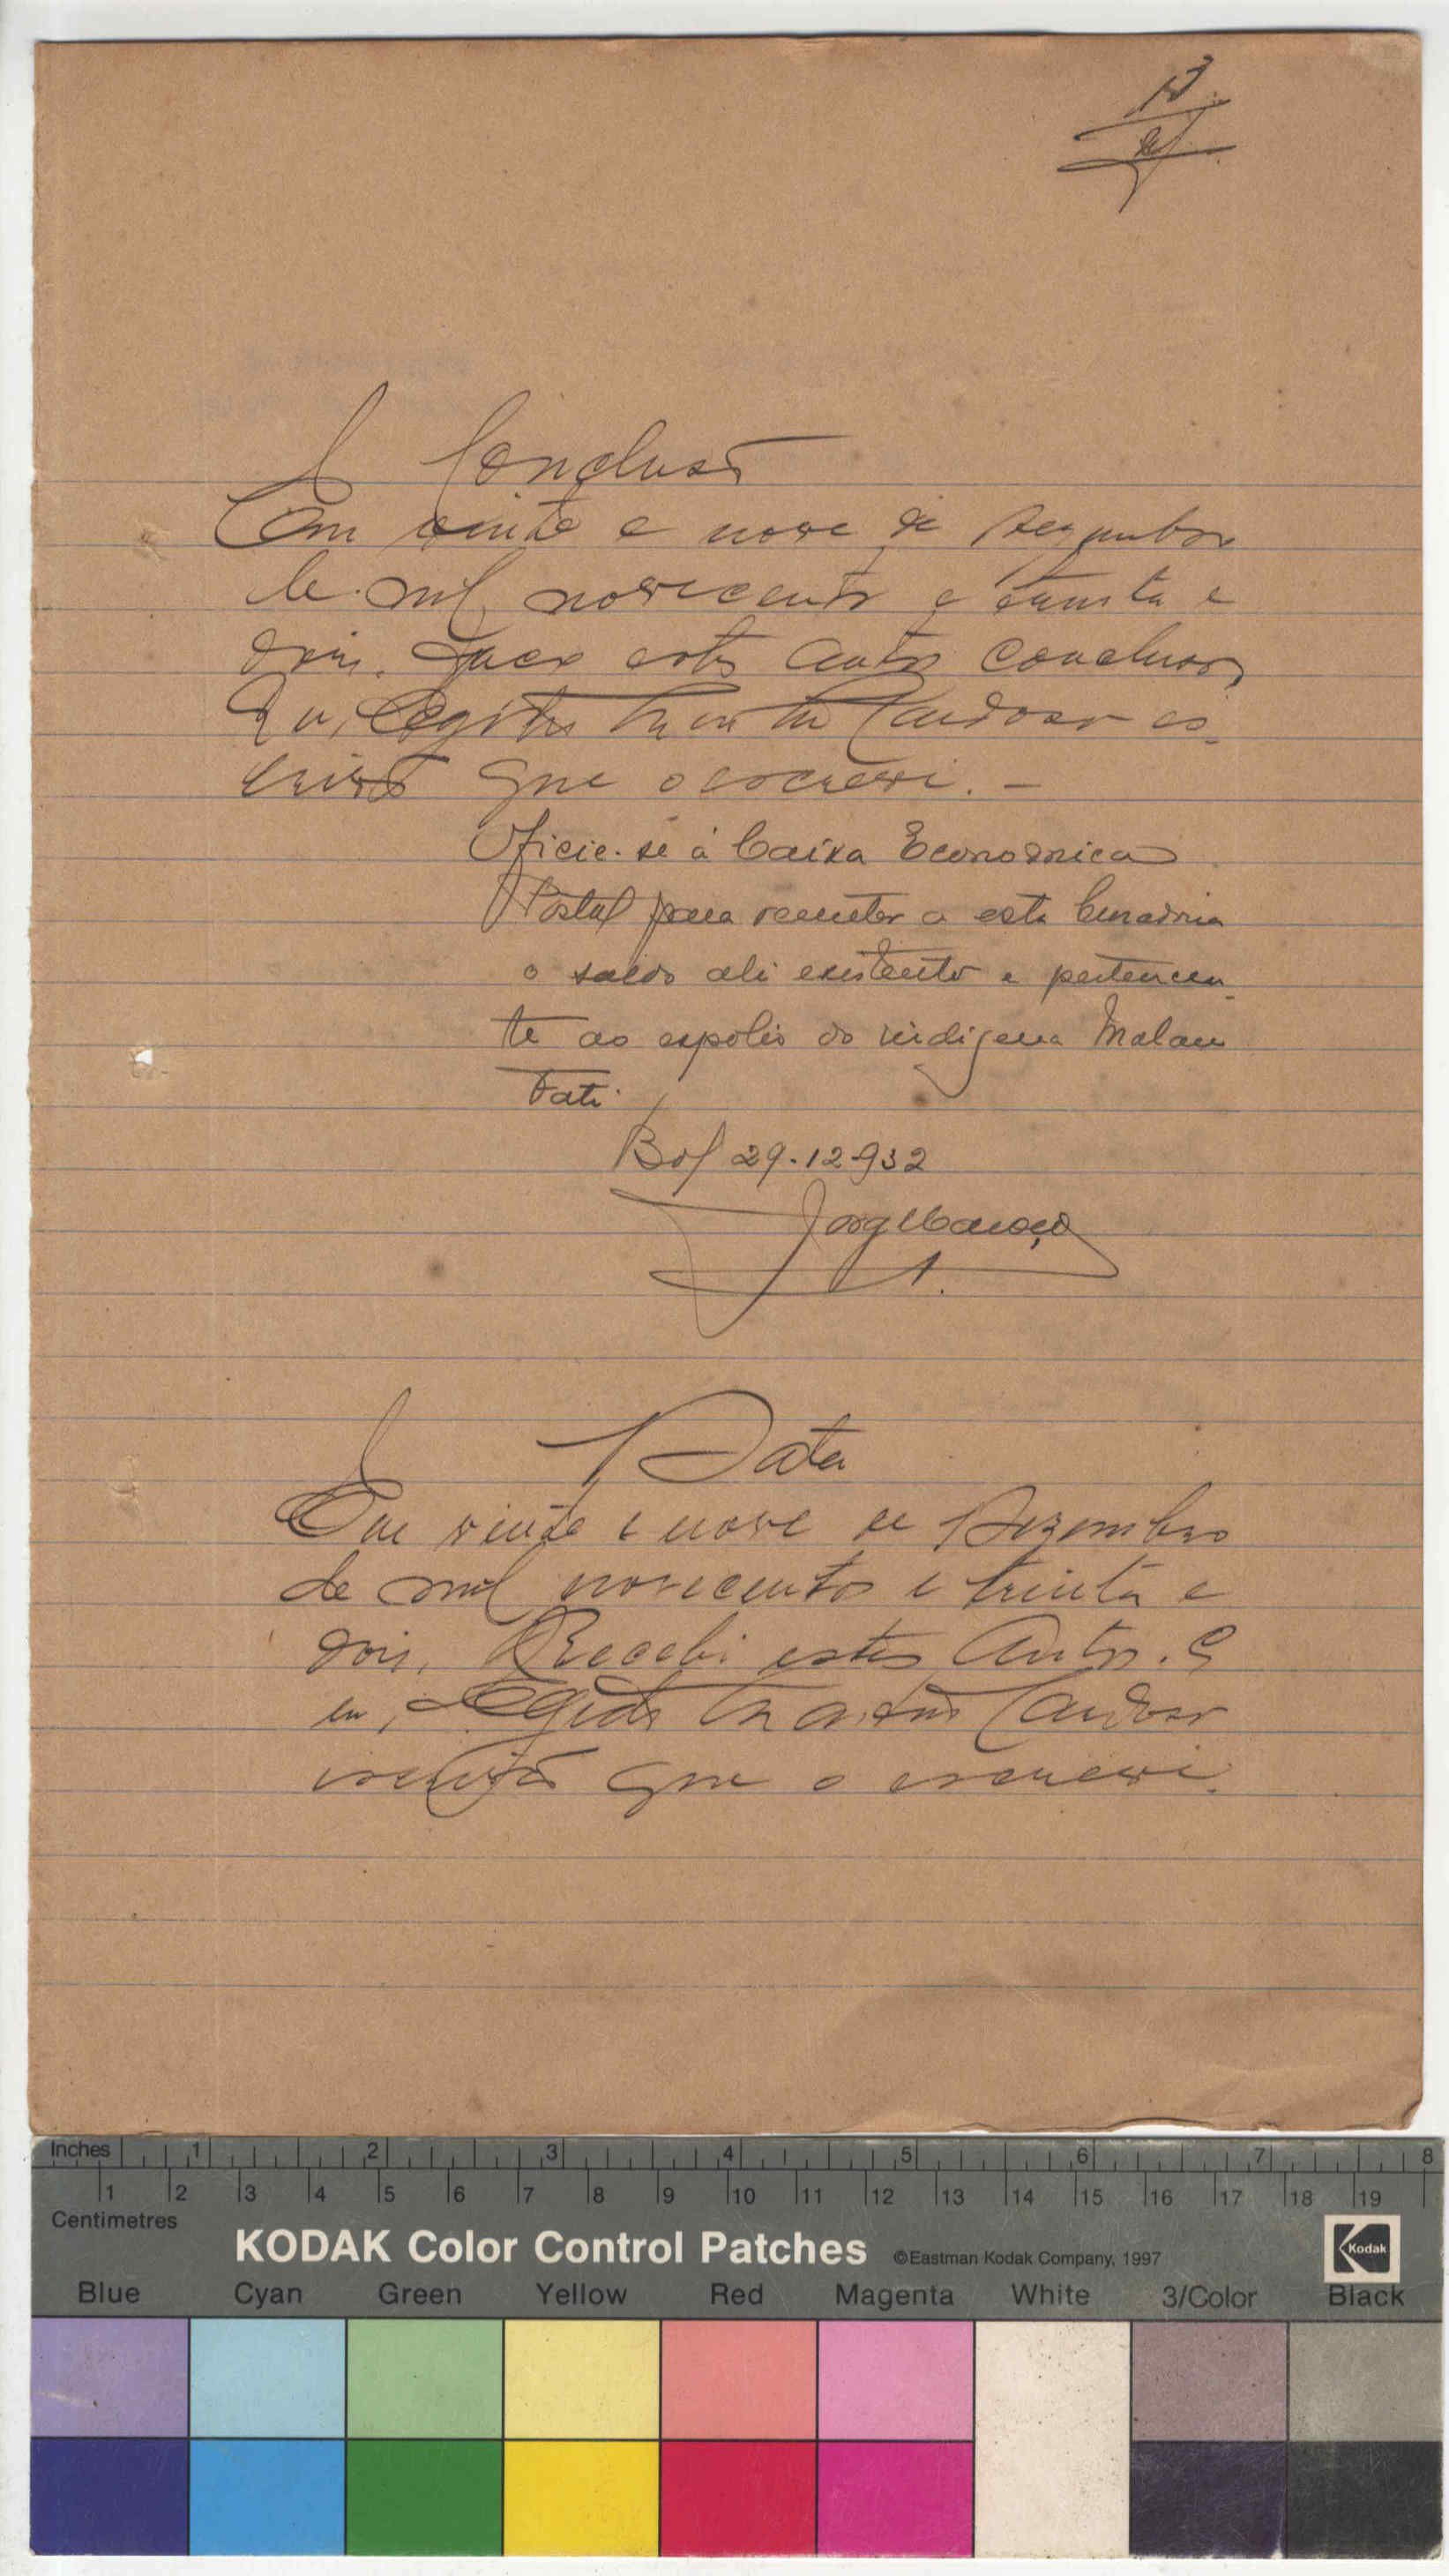 13
Conclusão
Em vinte e nove de Dezembro
de mil novecentos e trinta e
dois. Faço estes autos conclusos,
Eu, Egidio Martins Cardoso es-
crivão que o escrevi. —
Oficie-se á Caixa Economica
Postal para remeter a esta Curadoria
o saldo ali existente e pertencen-
te ao espolio do indigena Malan
Fati.
Bol 29-12-932
Data
Em vinte e nove de Dezembro
de mil novecentos e trinta e
dois. Recebi estes Autos. E
eu, Egidio Martins Cardoso
escrivão que o escrevi.
Inches 1 2 3 4 5 6 7 8
1 2 3 4 5 6 7 8 9 10 11 12 13 14 15 16 17 18 19
Centimetres
KODAK Color Control Patches ©Eastman Kodak Company, 1997 Kodak
Blue Cyan Green Yellow Red Magenta White 3/Color Black